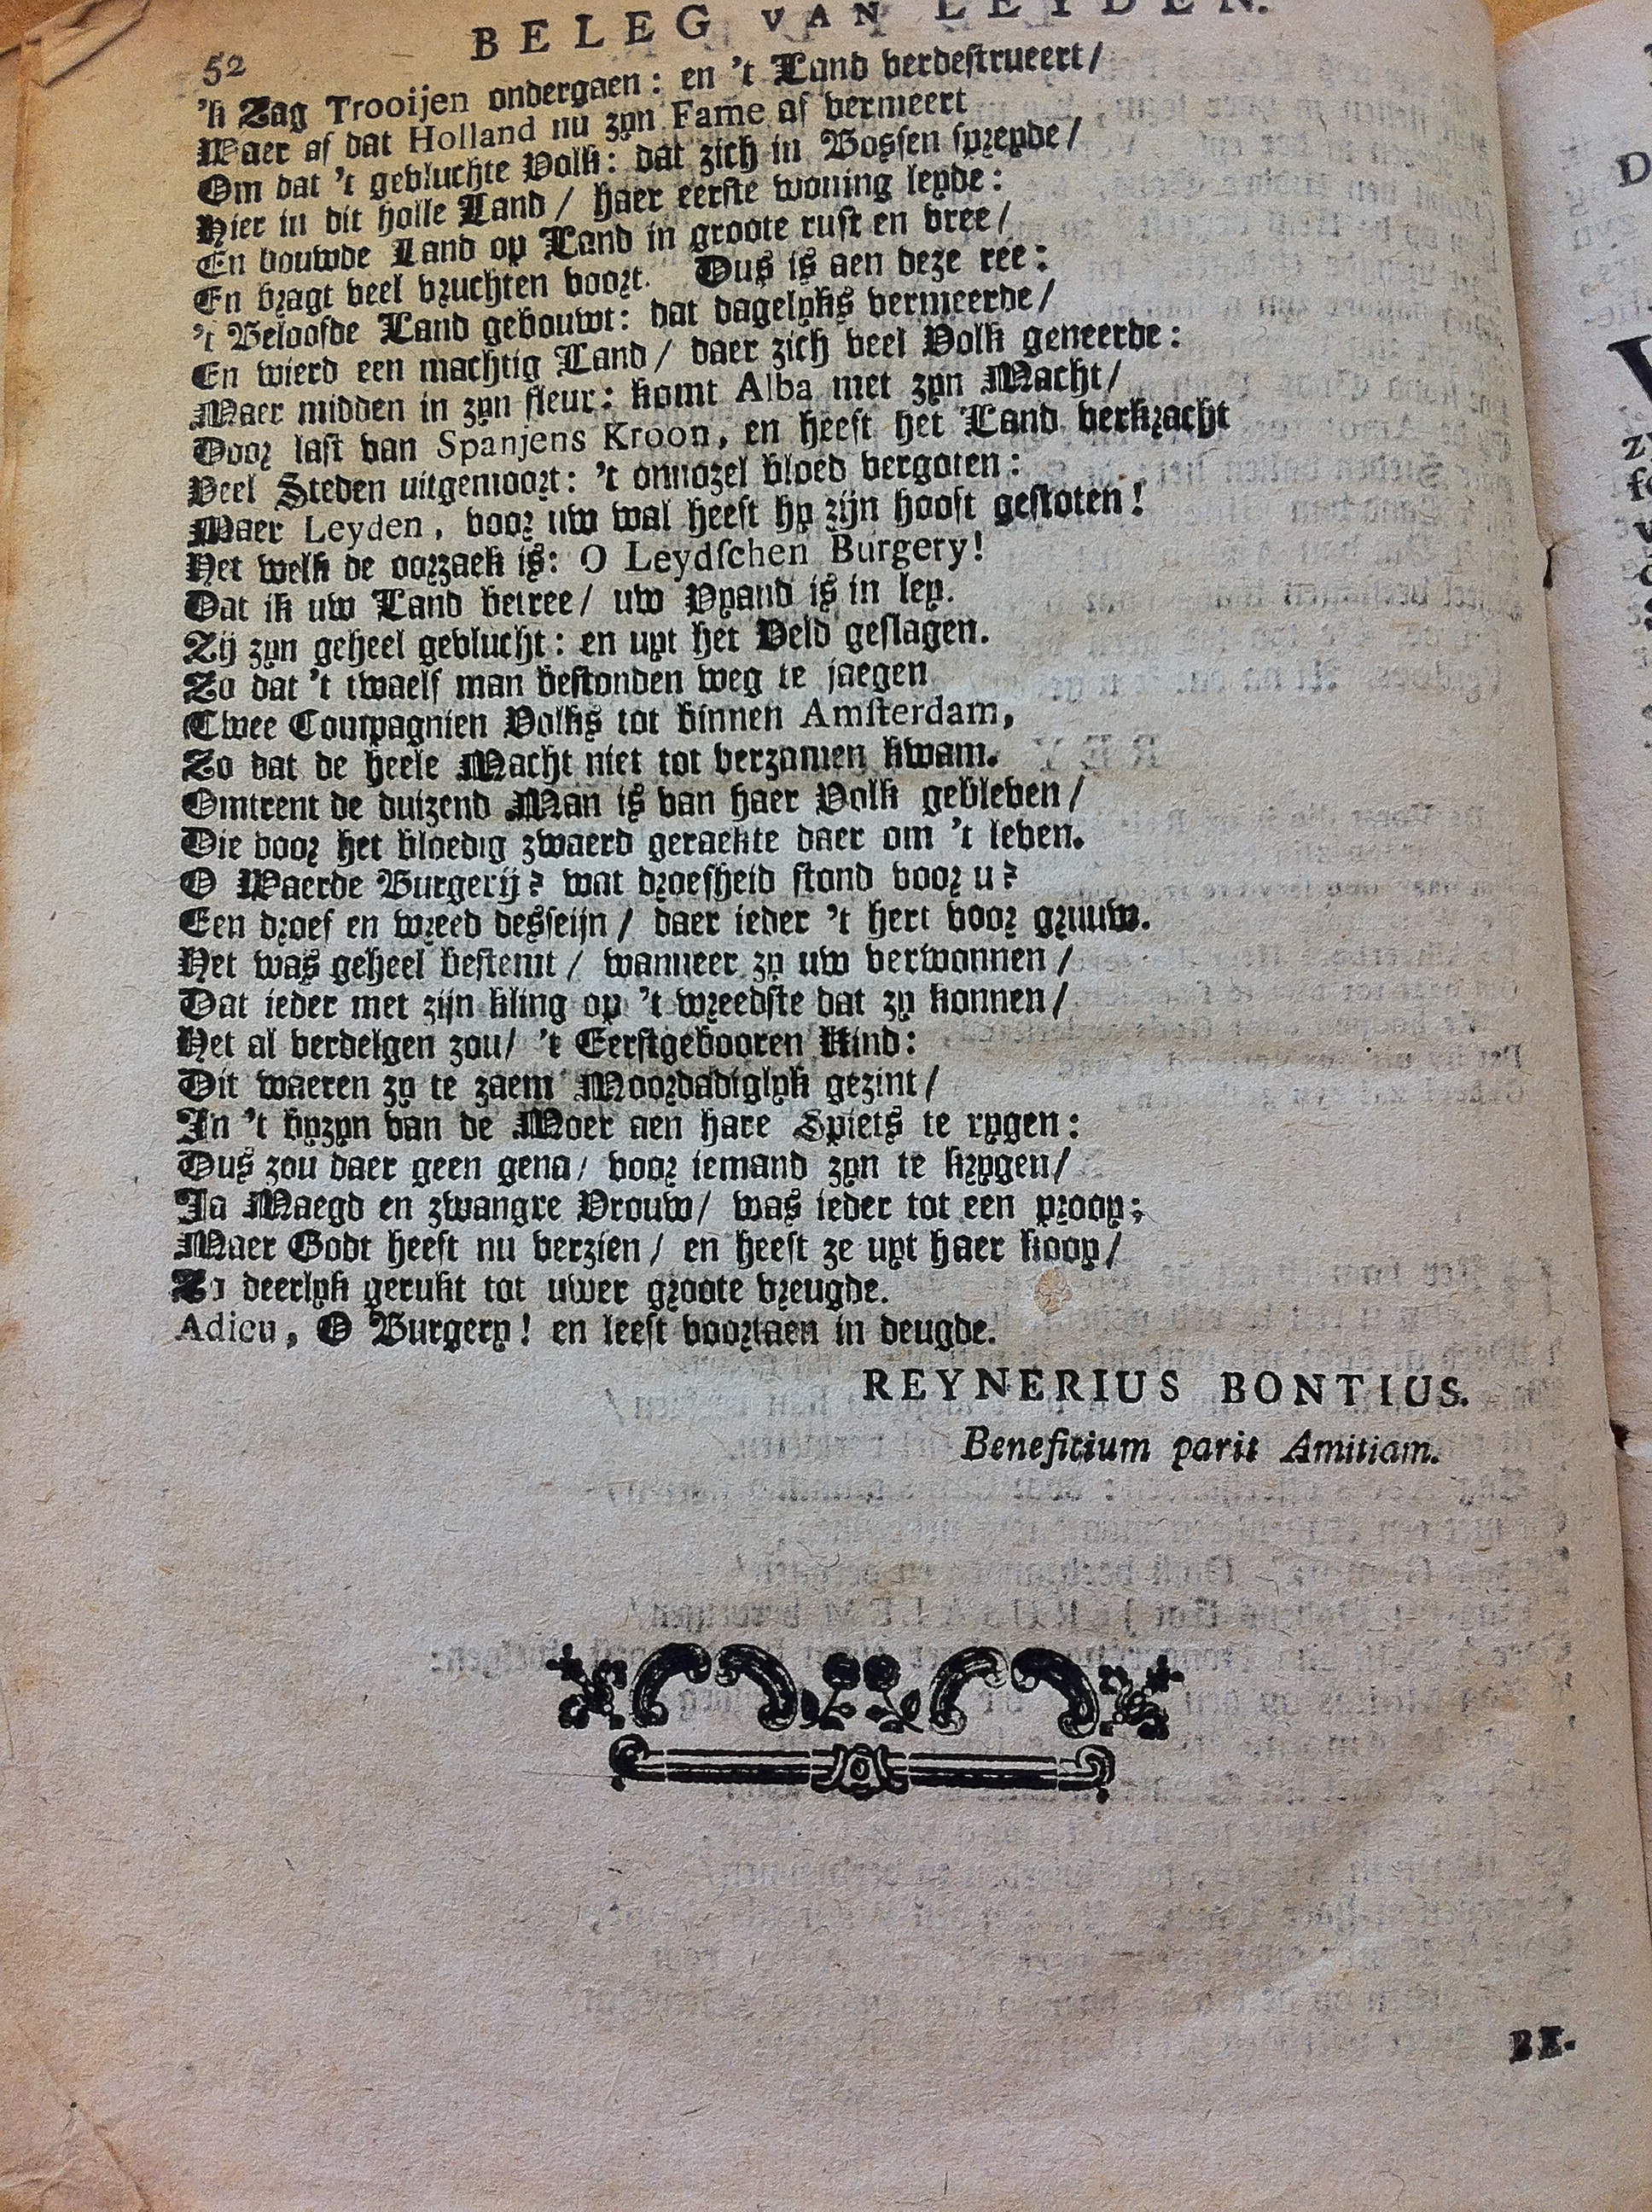 52 BELEG VAN LEYDEN.
'k Zag Trooijen ondergaen: en 't Land verdestrueert/
Waer af dat Holland nu zyn Fame af vermeert
Om dat 't gevluchte Volk: dat zich in Bossen spreyde/
Hier in dit holle Land/ haer eerste woning leyde:
En bouwde Land op Land in groote rust en vree/
En bragt veel vruchten voort. Dus is aen deze ree:
't Beloofde Land gebouwt: dat dagelyks vermeerde/
En wierd een machtig Land/ daer zich veel Volk geneerde:
Maer midden in zyn fleur: komt Alba met zyn Macht/
Door last van Spanjens Kroon, en heeft het Land verkracht
Veel Steden uitgemoort: 't onnozel bloed vergoten:
Maer Leyden, voor uw wal heeft hy zijn hooft gestoten!
Het welk de oorzaek is: O Leydschen Burgery!
Dat ik uw Land betree/ uw Vyand is in ley.
Zij zyn geheel gevlucht: en uyt het Veld geslagen.
Zo dat 't twaelf man bestonden weg te jaegen
Twee Compagnien Volks tot binnen Amsterdam,
Zo dat de heele Macht niet tot verzamen kwam.
Omtrent de duizend Man is van haer Volk gebleven/
Die door het bloedig zwaerd geraekte daer om 't leven.
O Waerde Burgerij? wat droefheid stond voor u?
Een droef en wreed desseijn/ daer ieder 't hert voor gruuw.
Het was geheel bestemt/ wanneer zy uw verwonnen/
Dat ieder met zijn kling op 't wreedste dat zy konnen/
Het al verdelgen zou/ 't Eerstgebooren Kind:
Dit waeren zy te zaem Moordadiglyk gezint/
In 't byzyn van de Moer aen hare Spiets te rygen:
Dus zou daer geen gena/ voor iemand zyn te krygen/
Ja Maegd en zwangre Vrouw/ was ieder tot een proop;
Maer Godt heeft nu verzien/ en heeft ze uyt haer koop/
Zo deerlyk gerukt tot uwer groote vreugde.
Adieu, O Burgery! en leeft voortaen in deugde.
REYNERIUS BONTIUS.
Beneficium parit Amitiam.
BE-